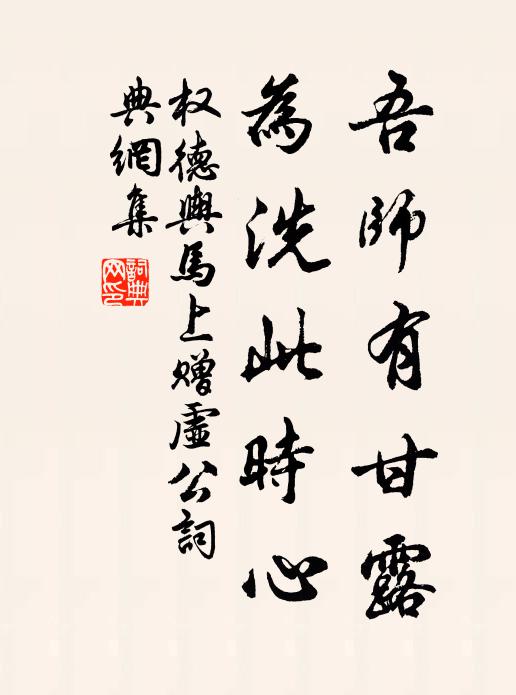 吾師有甘露
為洗此時心
权德輿馬上赠虛公詞
典網集
詞典
网印